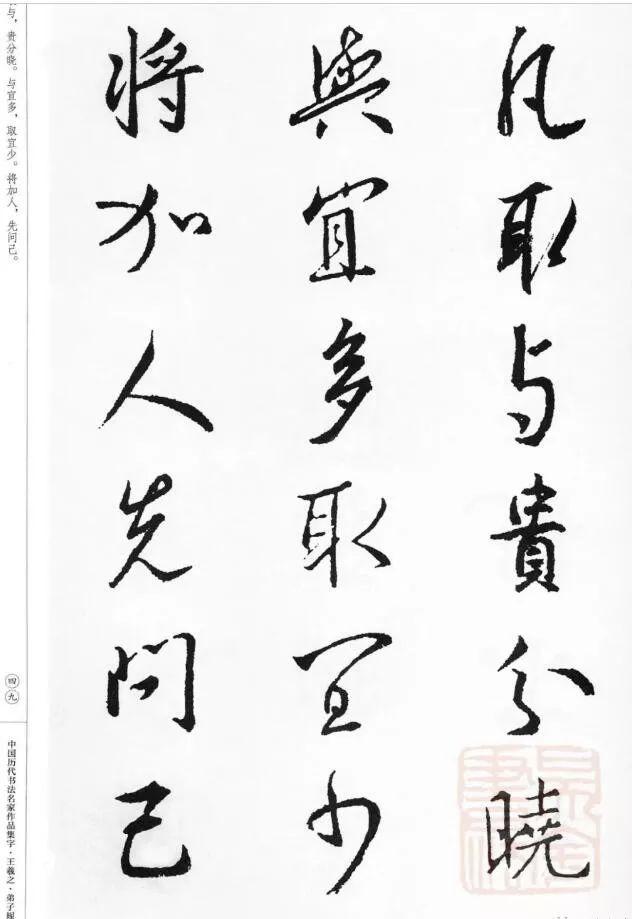 凡取与貴分曉
與宜多取宜少
將加人先問己
与，贵分晓。与宜多，取宜少。将加人，先问己。
四九
中国历代书法名家作品集字·王羲之·弟子规